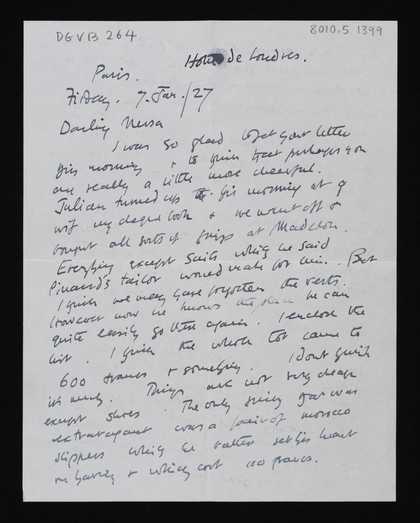 DGVB 264
8010.5.1399
Hotel de Londres.
Paris.
Friday. 7. Jan. /27
Darling Nessa
I was so glad to get your letter
this morning & to think that perhaps you
are really a little more cheerful.
Julian turned up this morning at 9
with my cheque book & we went off &
bought all sorts of things at Madelon.
Everything except suits which he said
Pinaud's tailor would make for him. But
I think we may have forgotten the vests.
However now he knows the place he can
quite easily go there again. I enclose the
list. I think the whole lot came to
600 francs & something. I don't think
it's much. Things are not very cheap
except shoes. The only thing that was
extravagant was a pair of morocco
slippers which he rather set his heart
on having & which cost 100 francs.